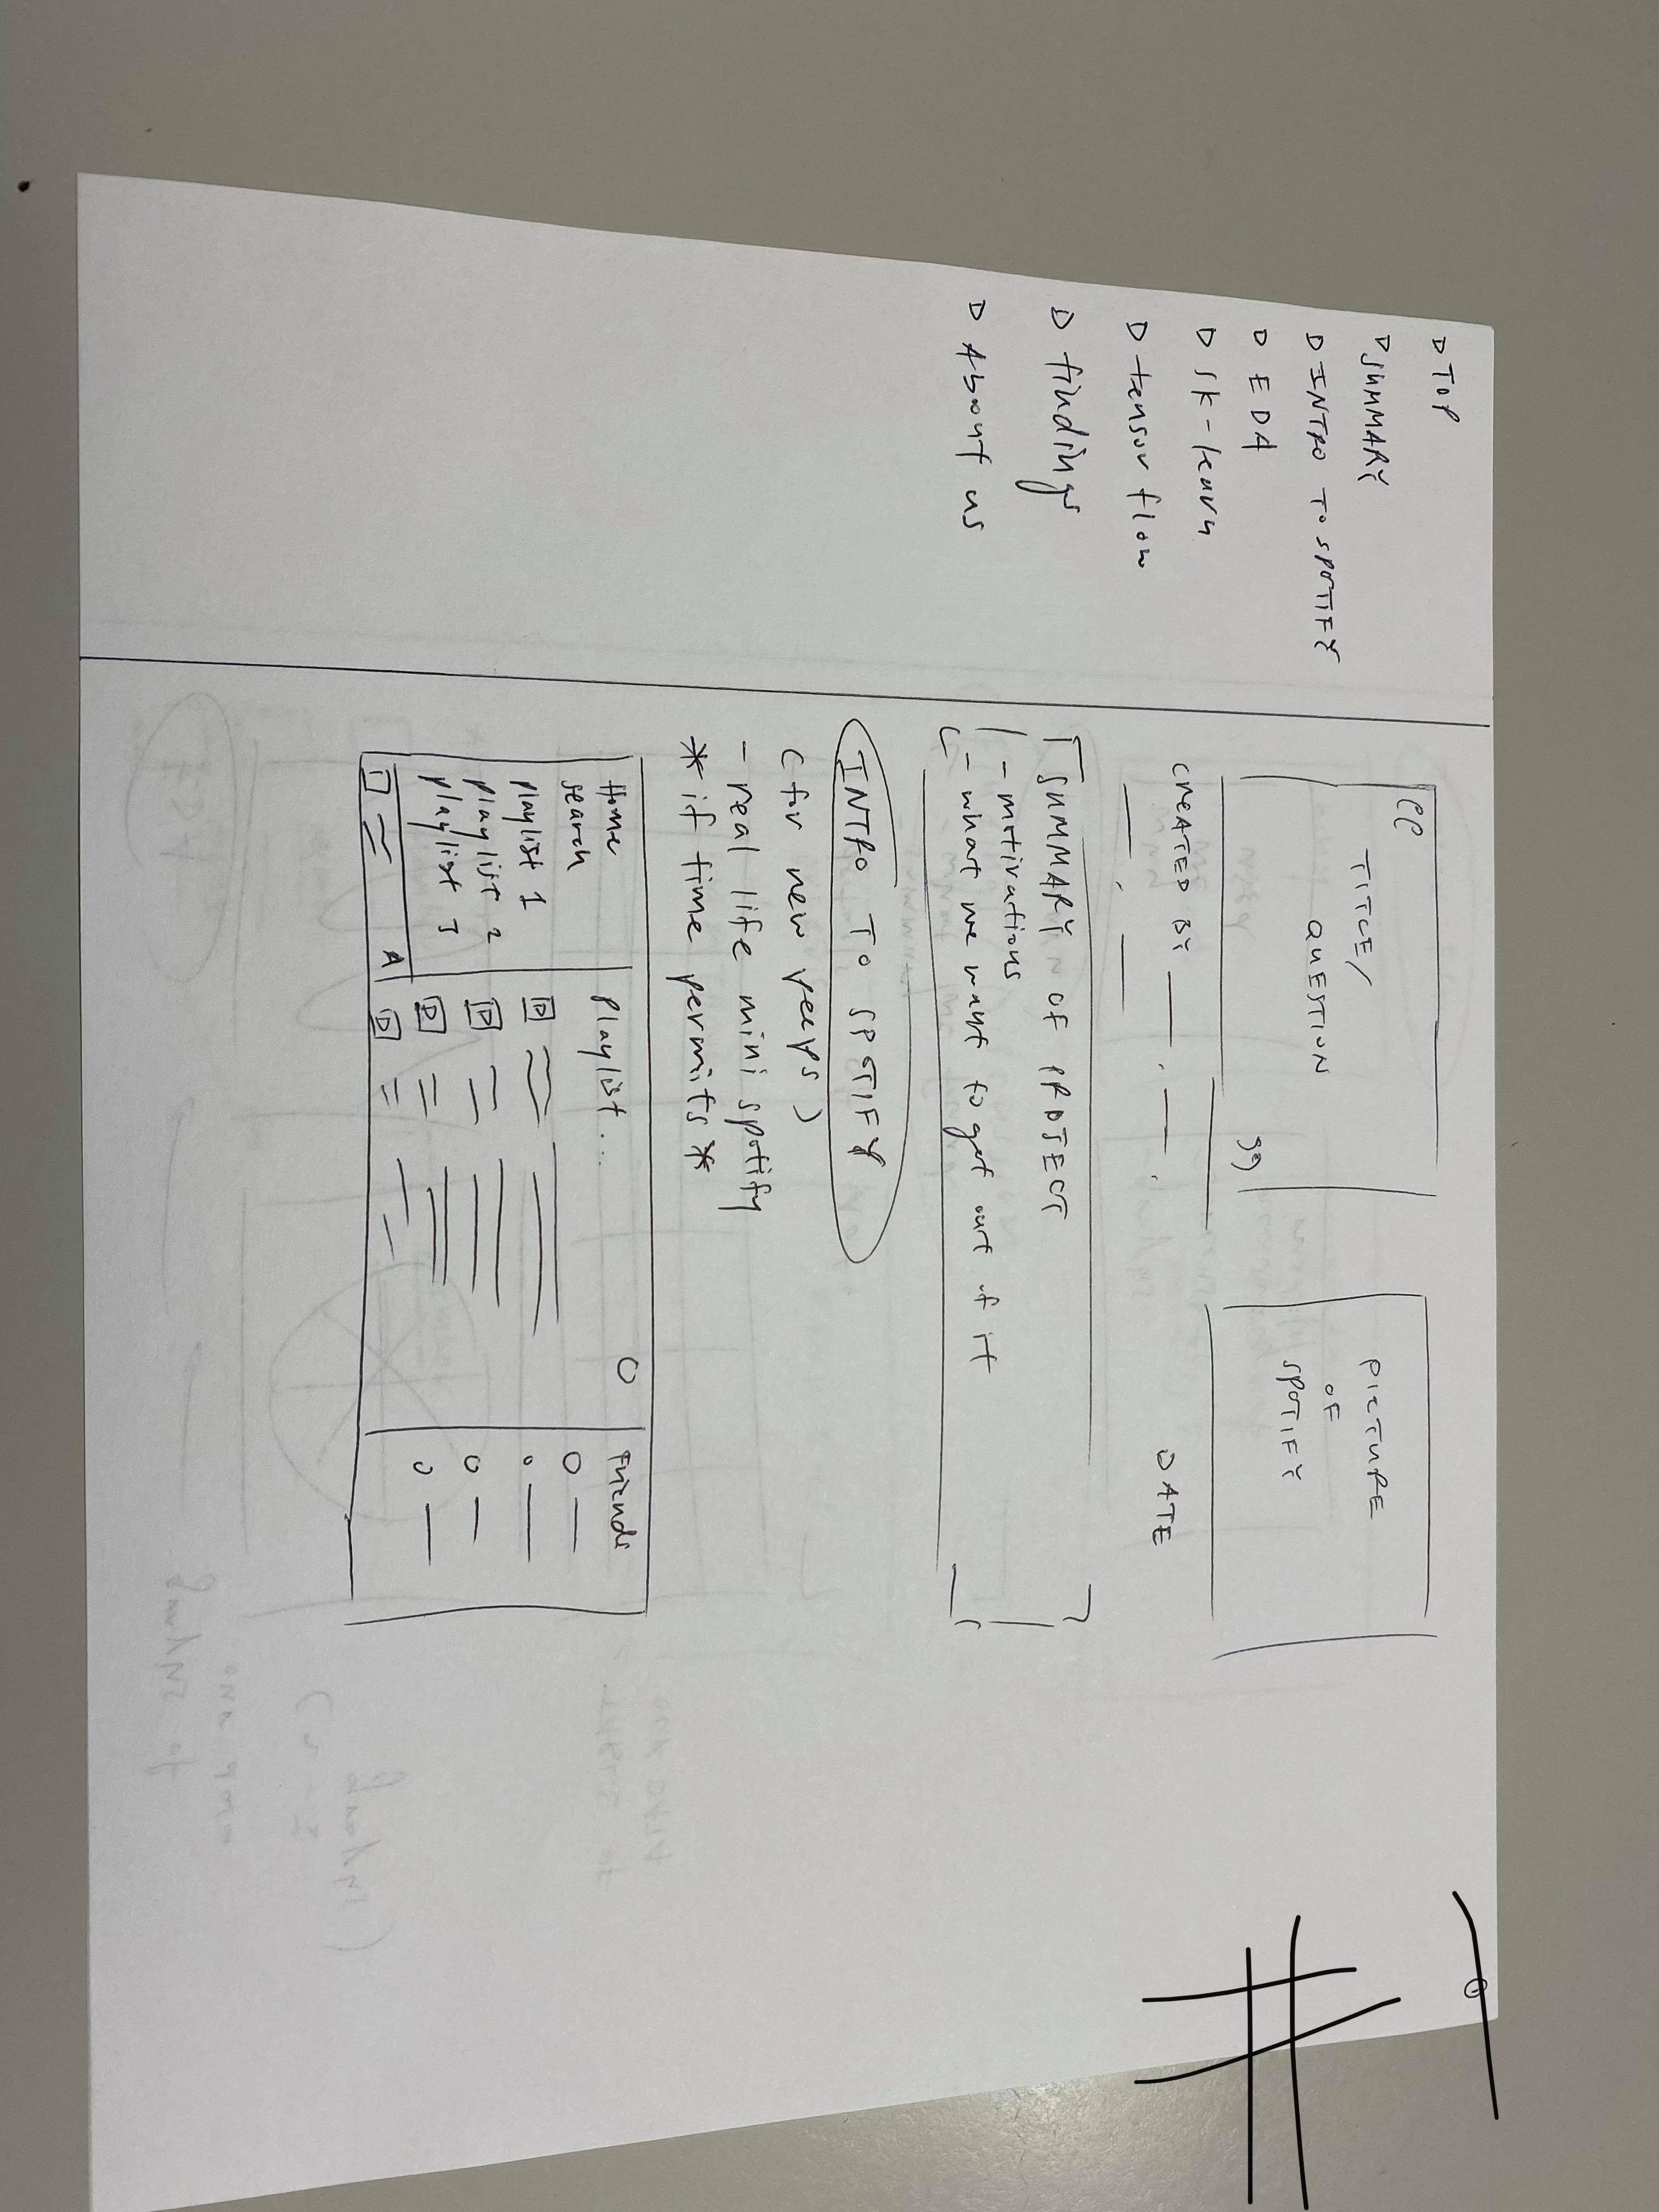 TOP
SUMMARY
INTRO TO SPOTIFY
EDA
sk-learn
tensor flow
findings
About us
TITLE/
QUESTION
PICTURE
OF
SPOTIFY
CREATED BY
DATE
SUMMARY OF PROJECT
- motivations
- what we want to get out of it
INTRO TO SPOTIFY
(for new peeps)
- real life mini spotify
* if time permits *
Home
search
playlist 1
playlist 2
playlist 3
Playlist...
Friends
#1